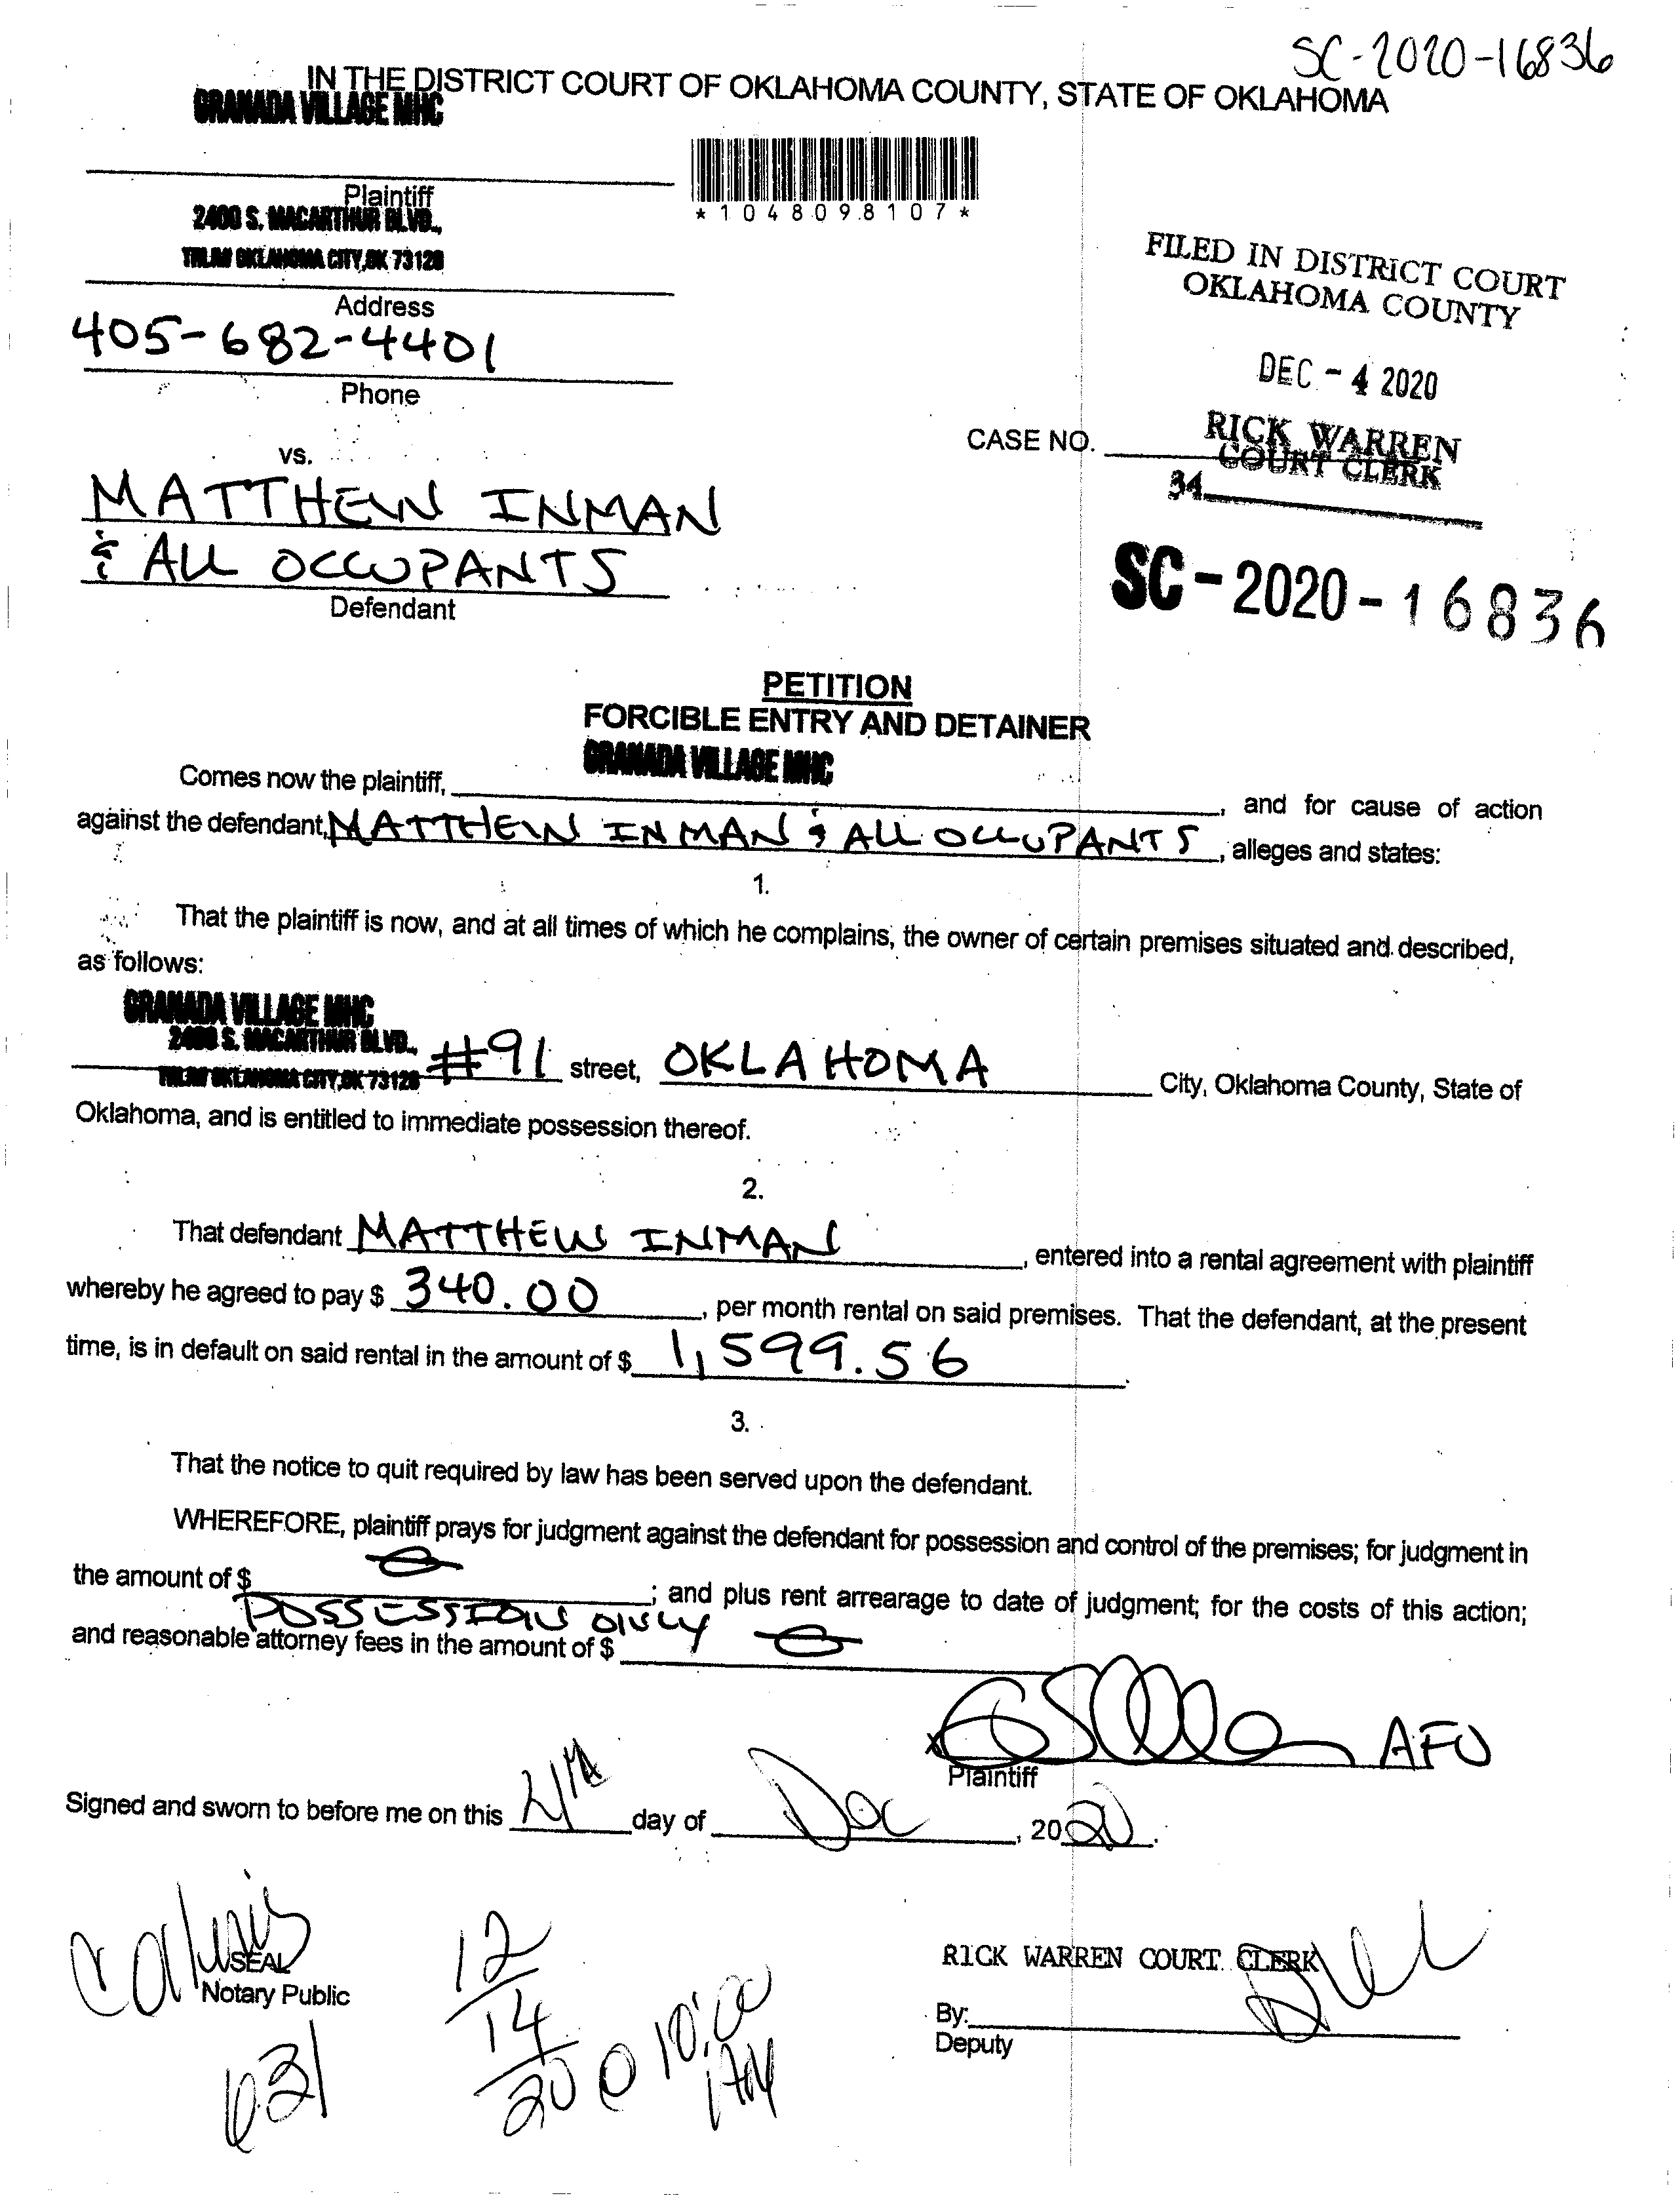 SC-2020-16836
IN THE DISTRICT COURT OF OKLAHOMA COUNTY, STATE OF OKLAHOMA
GRANADA VILLAGE MHC
Plaintiff
2400 S. MACARTHUR BLVD.,
OKLAHOMA CITY, OK 73128
Address
405-682-4401
Phone
*1048098107*
FILED IN DISTRICT COURT
OKLAHOMA COUNTY
DEC - 4 2020
RICK WARREN
COURT CLERK
34
CASE NO.
vs.
MATTHEW INMAN
& ALL OCCUPANTS
Defendant
SC-2020-16836
PETITION
FORCIBLE ENTRY AND DETAINER
GRANADA VILLAGE MHC
Comes now the plaintiff, , and for cause of action
against the defendant, MATTHEW INMAN & ALL OCCUPANTS, alleges and states:
1.
That the plaintiff is now, and at all times of which he complains, the owner of certain premises situated and described,
as follows:
GRANADA VILLAGE MHC
2400 S. MACARTHUR BLVD.,
OKLAHOMA CITY, OK 73128 #91 street, OKLAHOMA City, Oklahoma County, State of
Oklahoma, and is entitled to immediate possession thereof.
2.
That defendant MATTHEW INMAN, entered into a rental agreement with plaintiff
whereby he agreed to pay $ 340.00, per month rental on said premises. That the defendant, at the present
time, is in default on said rental in the amount of $ 1,599.56.
3.
That the notice to quit required by law has been served upon the defendant.
WHEREFORE, plaintiff prays for judgment against the defendant for possession and control of the premises; for judgment in
the amount of $ ; and plus rent arrearage to date of judgment; for the costs of this action;
POSSESSION ONLY
and reasonable attorney fees in the amount of $
X AFU
Plaintiff
Signed and sworn to before me on this 4th day of Dec, 2020.
SEAL
Notary Public
631
12/14/20 @ 10:00 AM
RICK WARREN COURT CLERK
By:
Deputy